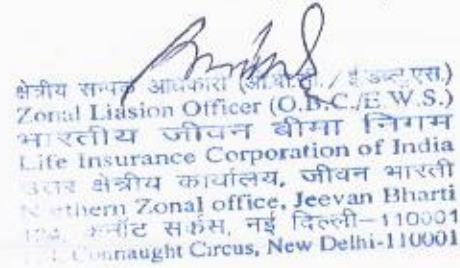 क्षेत्रीय सम्पर्क अधिकारी (ओ.बी.सी. / ई.डब्ल्यू.एस.)
Zonal Liasion Officer (O.B.C./E.W.S.)
भारतीय जीवन बीमा निगम
Life Insurance Corporation of India
उत्तर क्षेत्रीय कार्यालय, जीवन भारती
Northern Zonal office, Jeevan Bharti
124, कनॉट सर्कस, नई दिल्ली-110001
124, Connaught Circus, New Delhi-110001